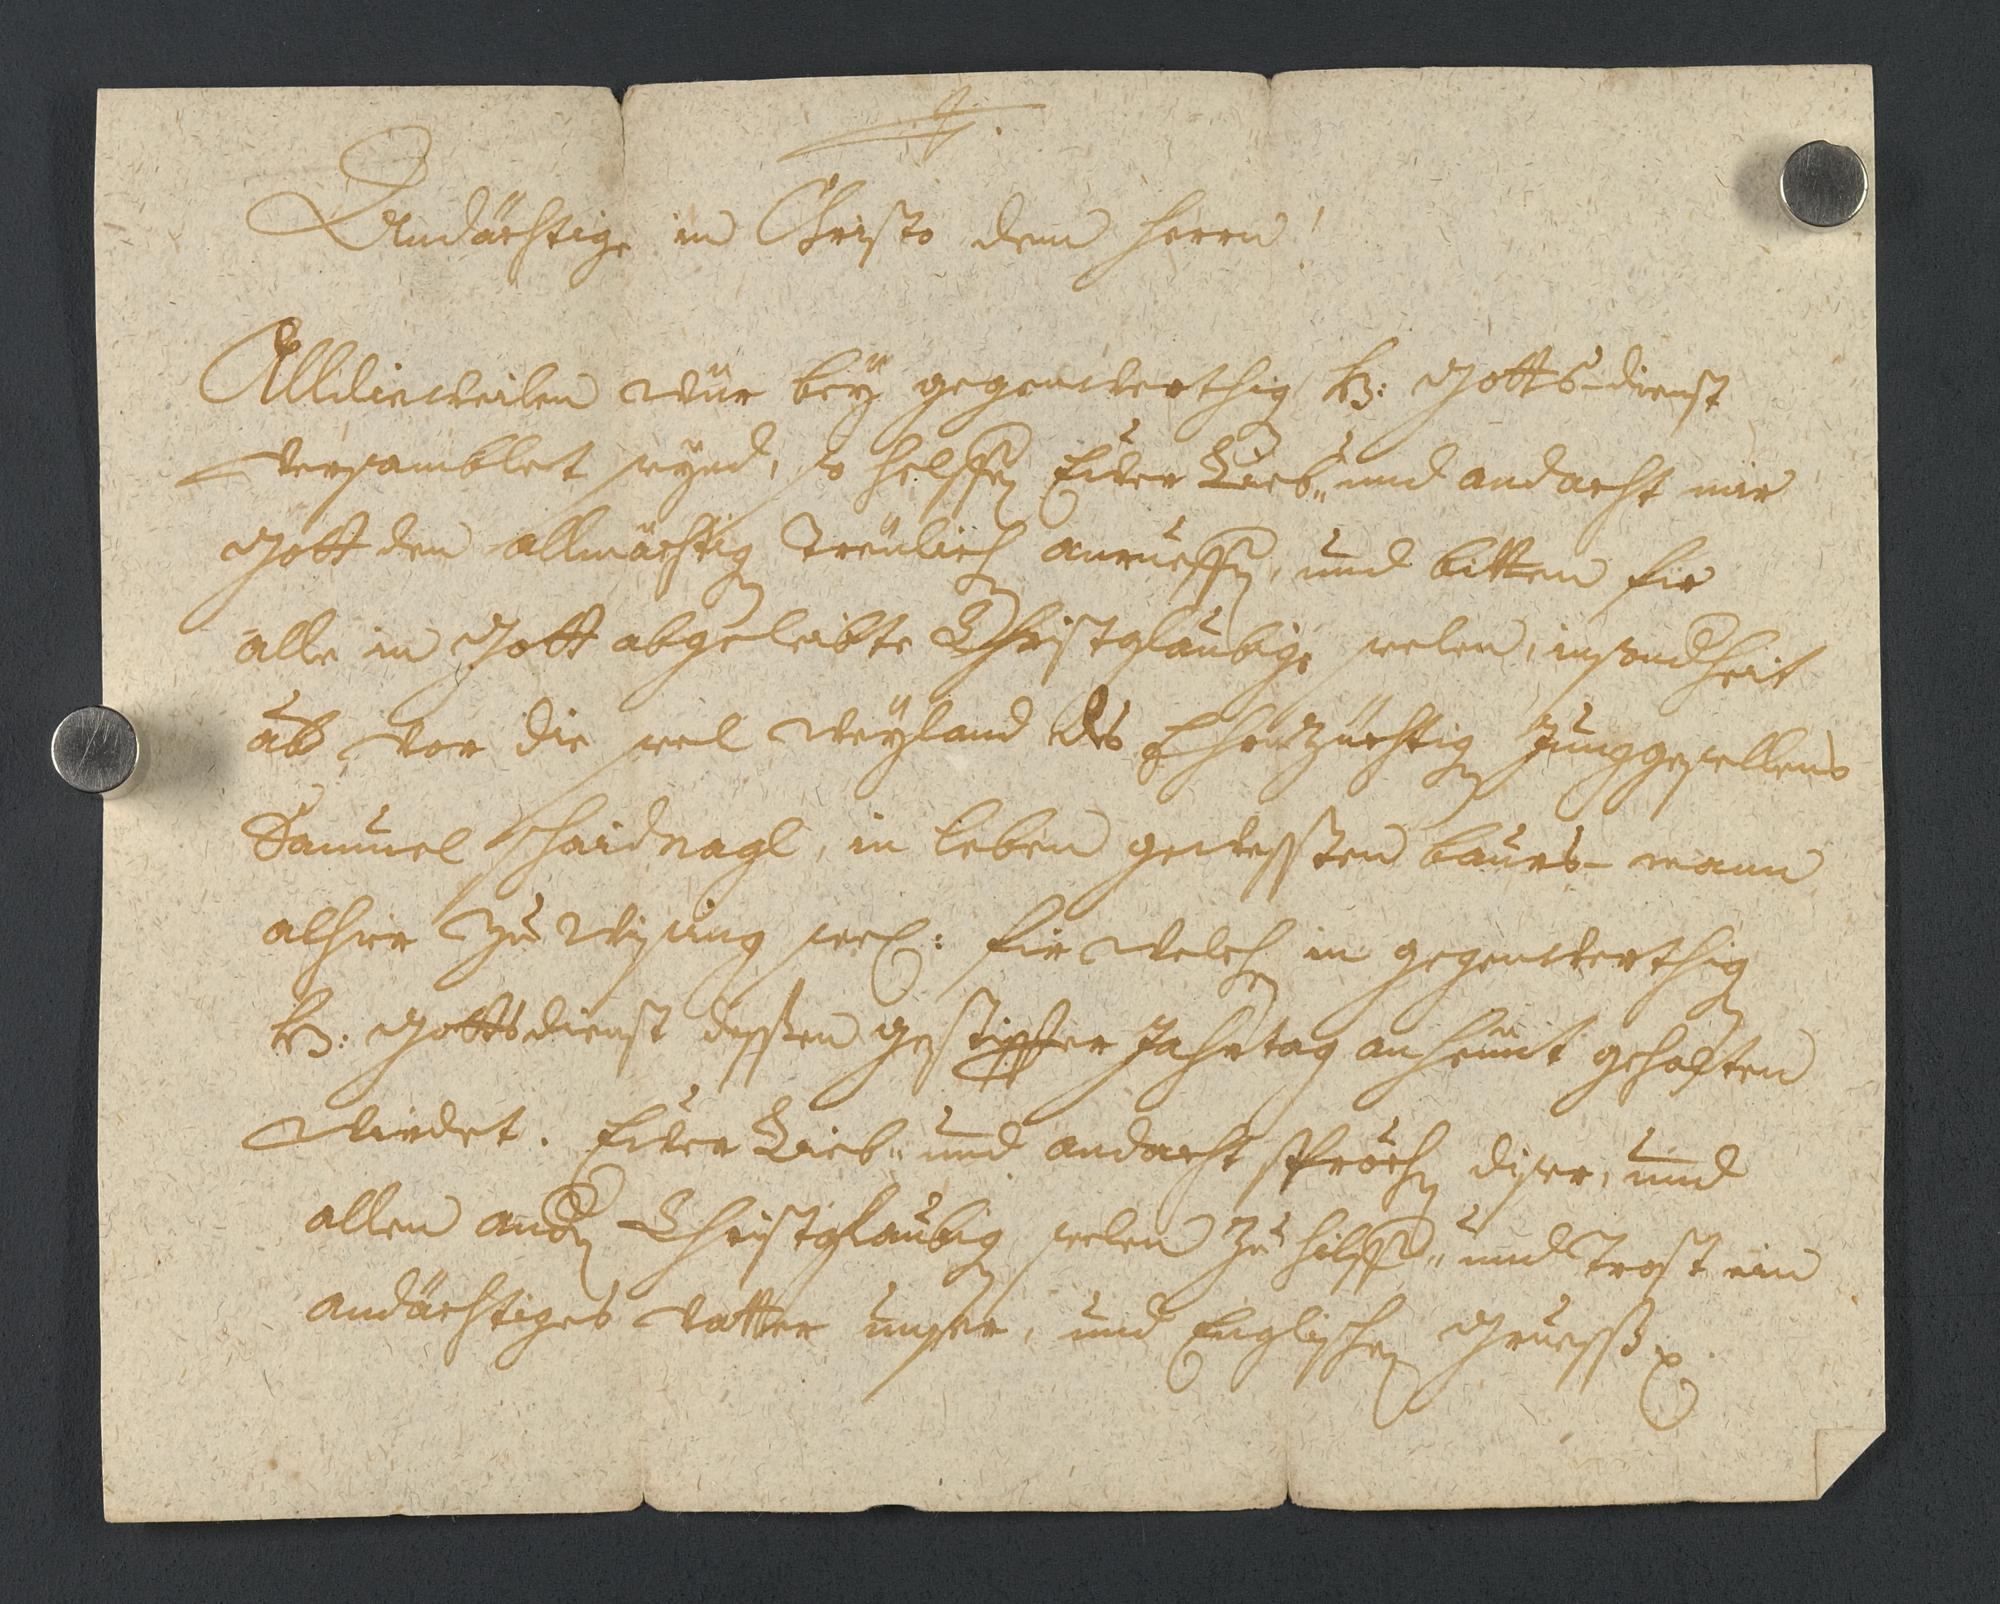 Andächtige in Christo dem Herrn!
Alldieweilen wür beÿ gegenwerthig H: Gotts-dienst
versamblet seÿnd, so helffen Eüer Lieb„ und andacht mir
Gott den allmächtig Treülich anrueffen, und bitten fir
alle in Gott abgeleibte Christglaubige seelen, insondheit
ab vor die seel weÿland des Ehrnzüchtig Junggesellens
Samuel Schaidnagl, in leben gewesßten baurs-mann
alhier zu seel: fir welchen in gegenwerthig
H: Gottsdienst desßen gestiffter Jahrtag anheünt gehalten
wirdet. Eüer Lieb„ und andacht spröchen diser, und
allen andn Christglaubig seelen zu hilff„ und Trost ein
andächtiges vatter unser, und Englischen Gruesß